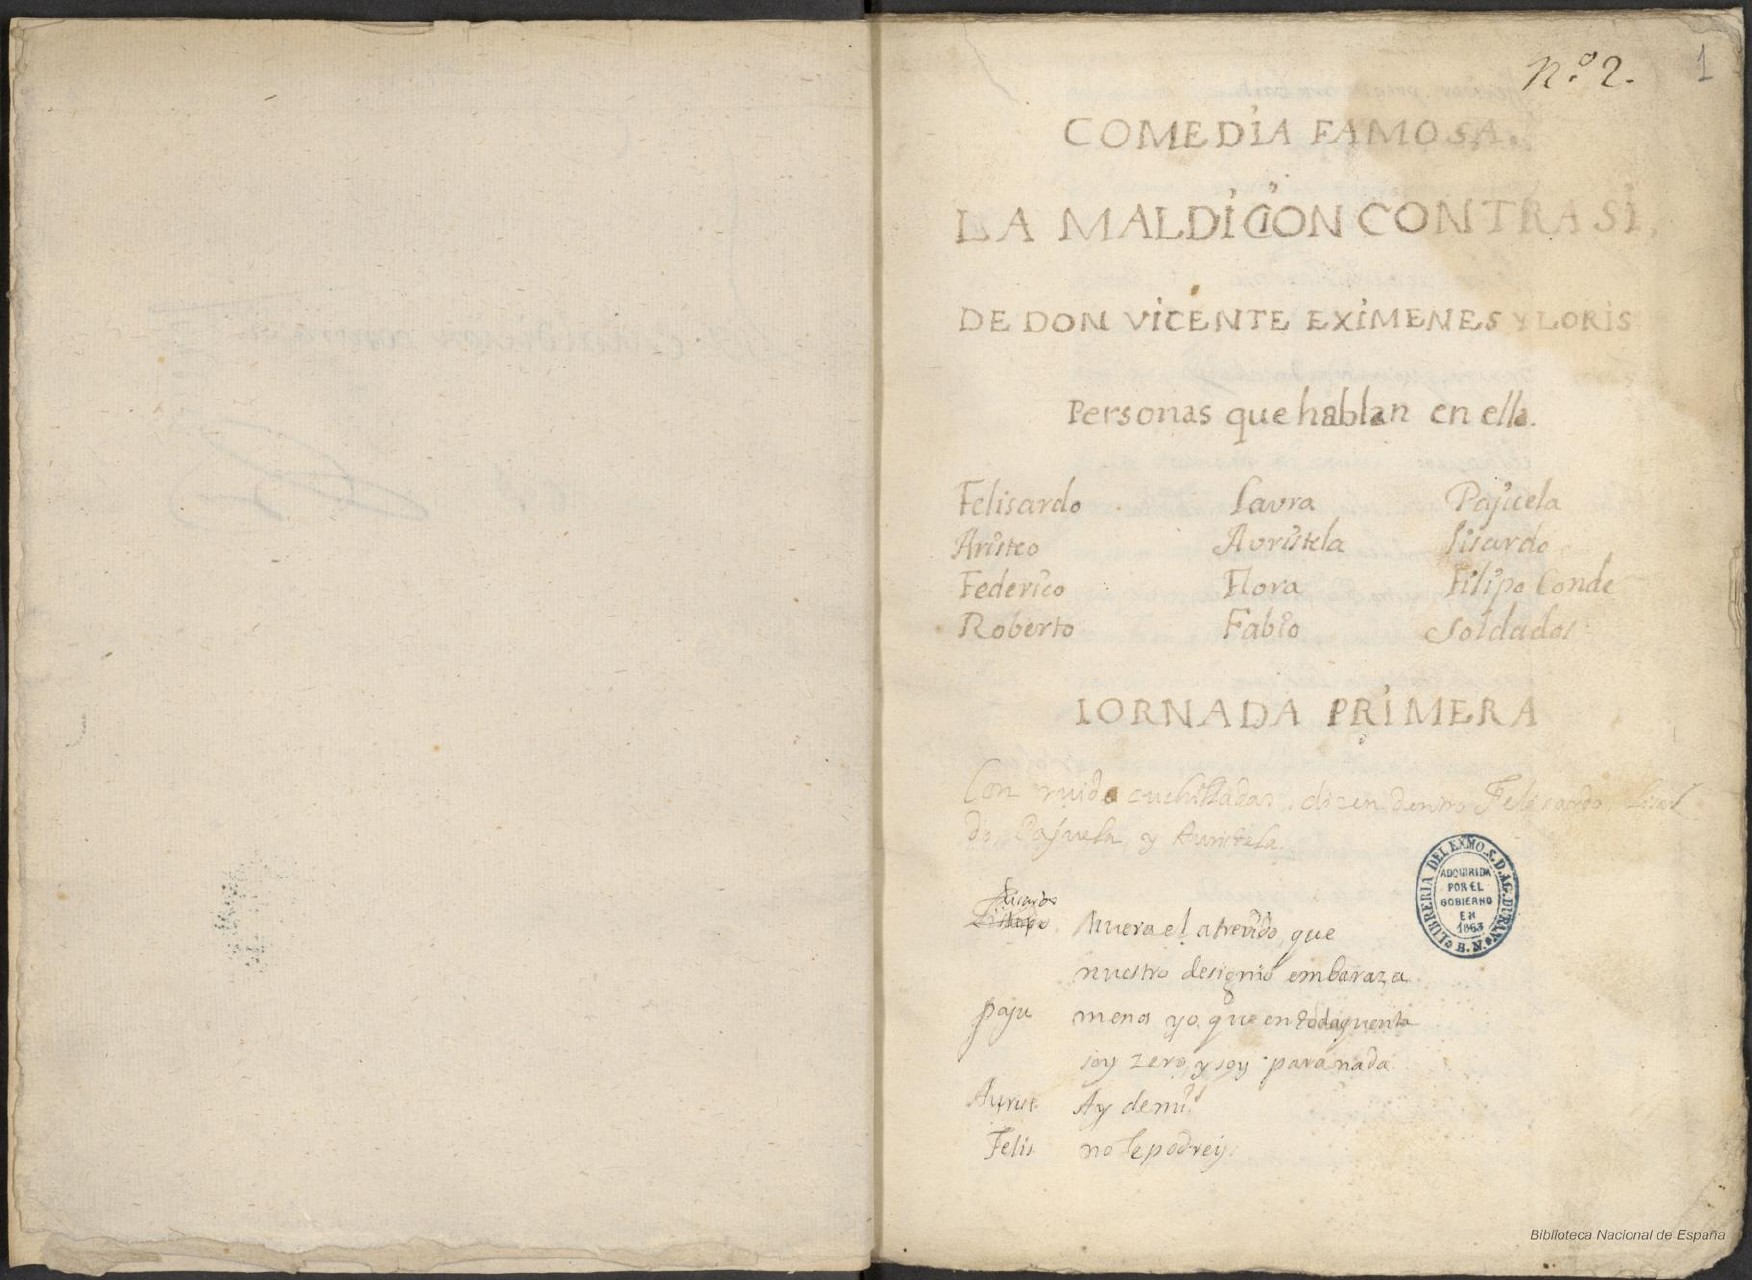 Nº 2.
1
COMEDIA FAMOSA.
LA MALDICION CONTRA SI,
DE DON VICENTE EXIMENES Y LORIS
Personas que hablan en ella.
Felisardo Laura Pajuela
Aristeo Auristela Lisardo
Federico Flora Filipo Conde
Roberto Fabio Soldados
IORNADA PRIMERA
Con ruido cuchilladas, dizen dentro Felisardo, Lisar
do, Pajuela, y Auristela.
Lisardo
Muera el atrevido, que
nuestro designio embaraza
Paju menos yo, que en toda quenta
soy zero, y soy para nada
Auris Ay de mi!
Felis no le podreis
LIBRERIA DEL EXMO. S. D. AG. DURAN B. N.
ADQUIRIDA
POR EL
GOBIERNO
EN
1863
Biblioteca Nacional de España